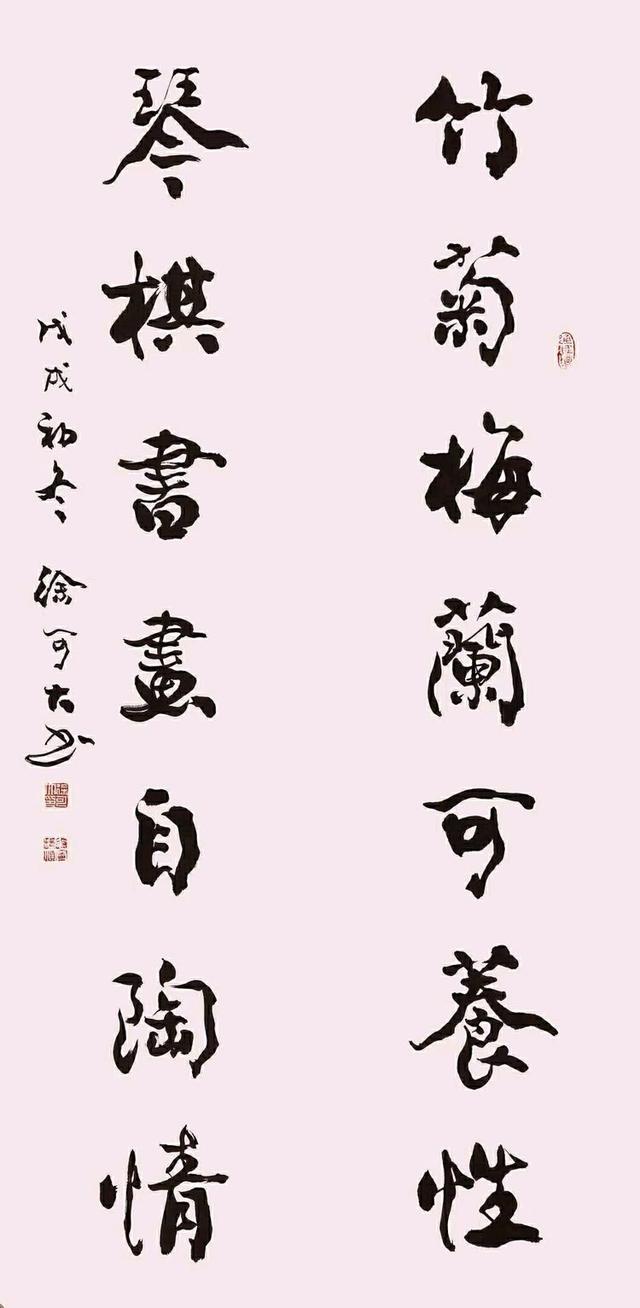 竹菊梅蘭可養性
琴棋書畫自陶情
戊戌初冬 徐可大书